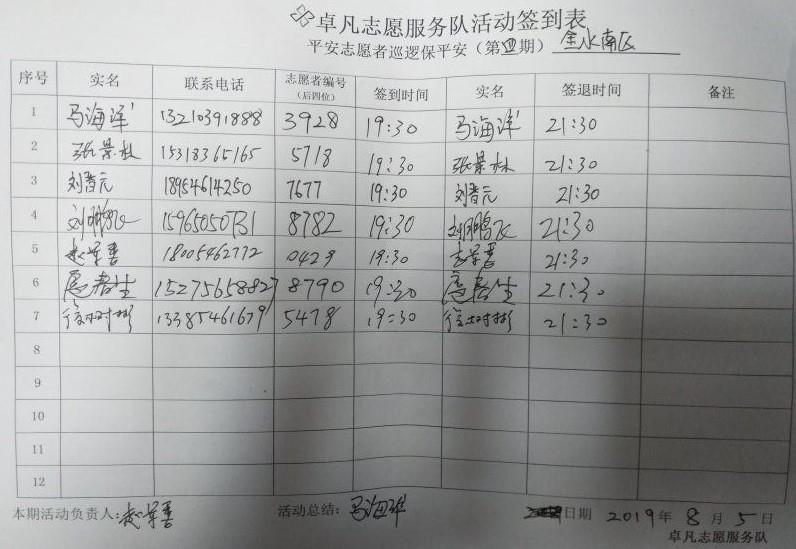 卓凡志愿服务队活动签到表
平安志愿者巡逻保平安（第四期） 金水南区
序号 实名 联系电话 志愿者编号（后四位） 签到时间 实名 签退时间 备注
1 马海洋 13210391888 3928 19:30 马海洋 21:30
2 张景林 15318365165 5718 19:30 张景林 21:30
3 刘晋元 18954614250 7677 19:30 刘晋元 21:30
4 刘鹏飞 15965050731 8782 19:30 刘鹏飞 21:30
5 18005462772 0429 19:30 21:30
6 15275658827 8790 19:30 21:30
7 13385461679 5478 19:30 21:30
8
9
10
11
12
本期活动负责人: 活动总结: 马海洋 日期 2019年 8月 5日
卓凡志愿服务队